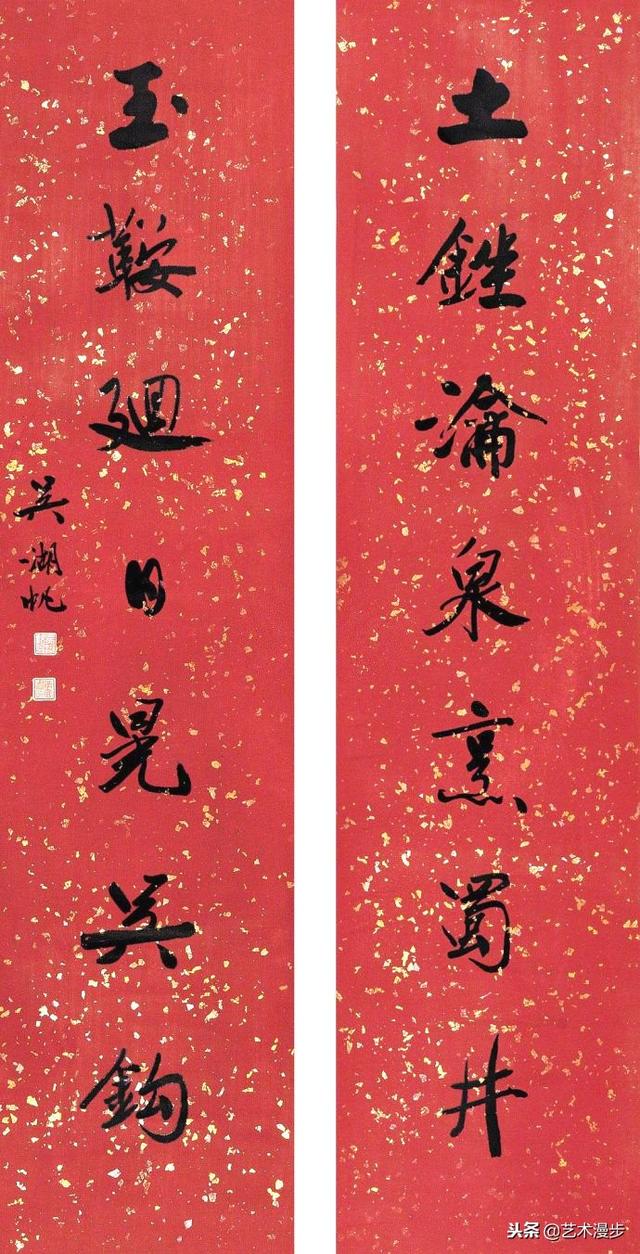 土銼瀹泉烹蜀井
玉鞍廻日晃吴鈎
吴湖帆
头条@艺术漫步